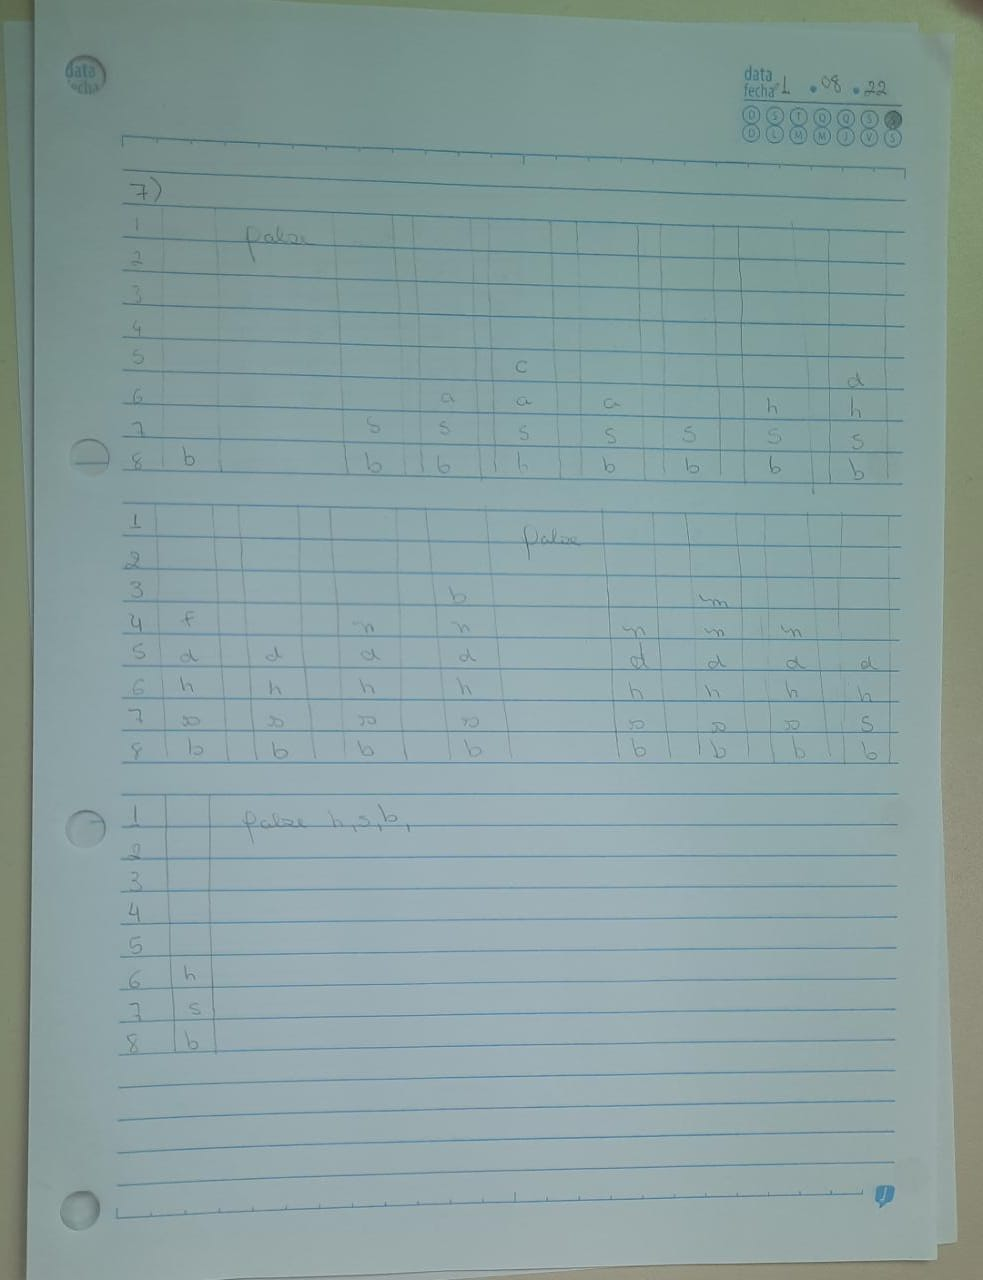 data
fecha
data
fecha 1 . 08 . 22
D S T Q Q S
D L M M J V S
7)
1 false
2
3
4
5 c d
6 a a a h h
7 s s s s s s s
8 b b b h b b b b
1 false
2
3 b m
4 f n n n n n
5 d d d d d d d d
6 h h h h h h h h
7 s s s s s s s s
8 b b b b b b b b
1 false h, s, b,
2
3
4
5
6 h
7 s
8 b